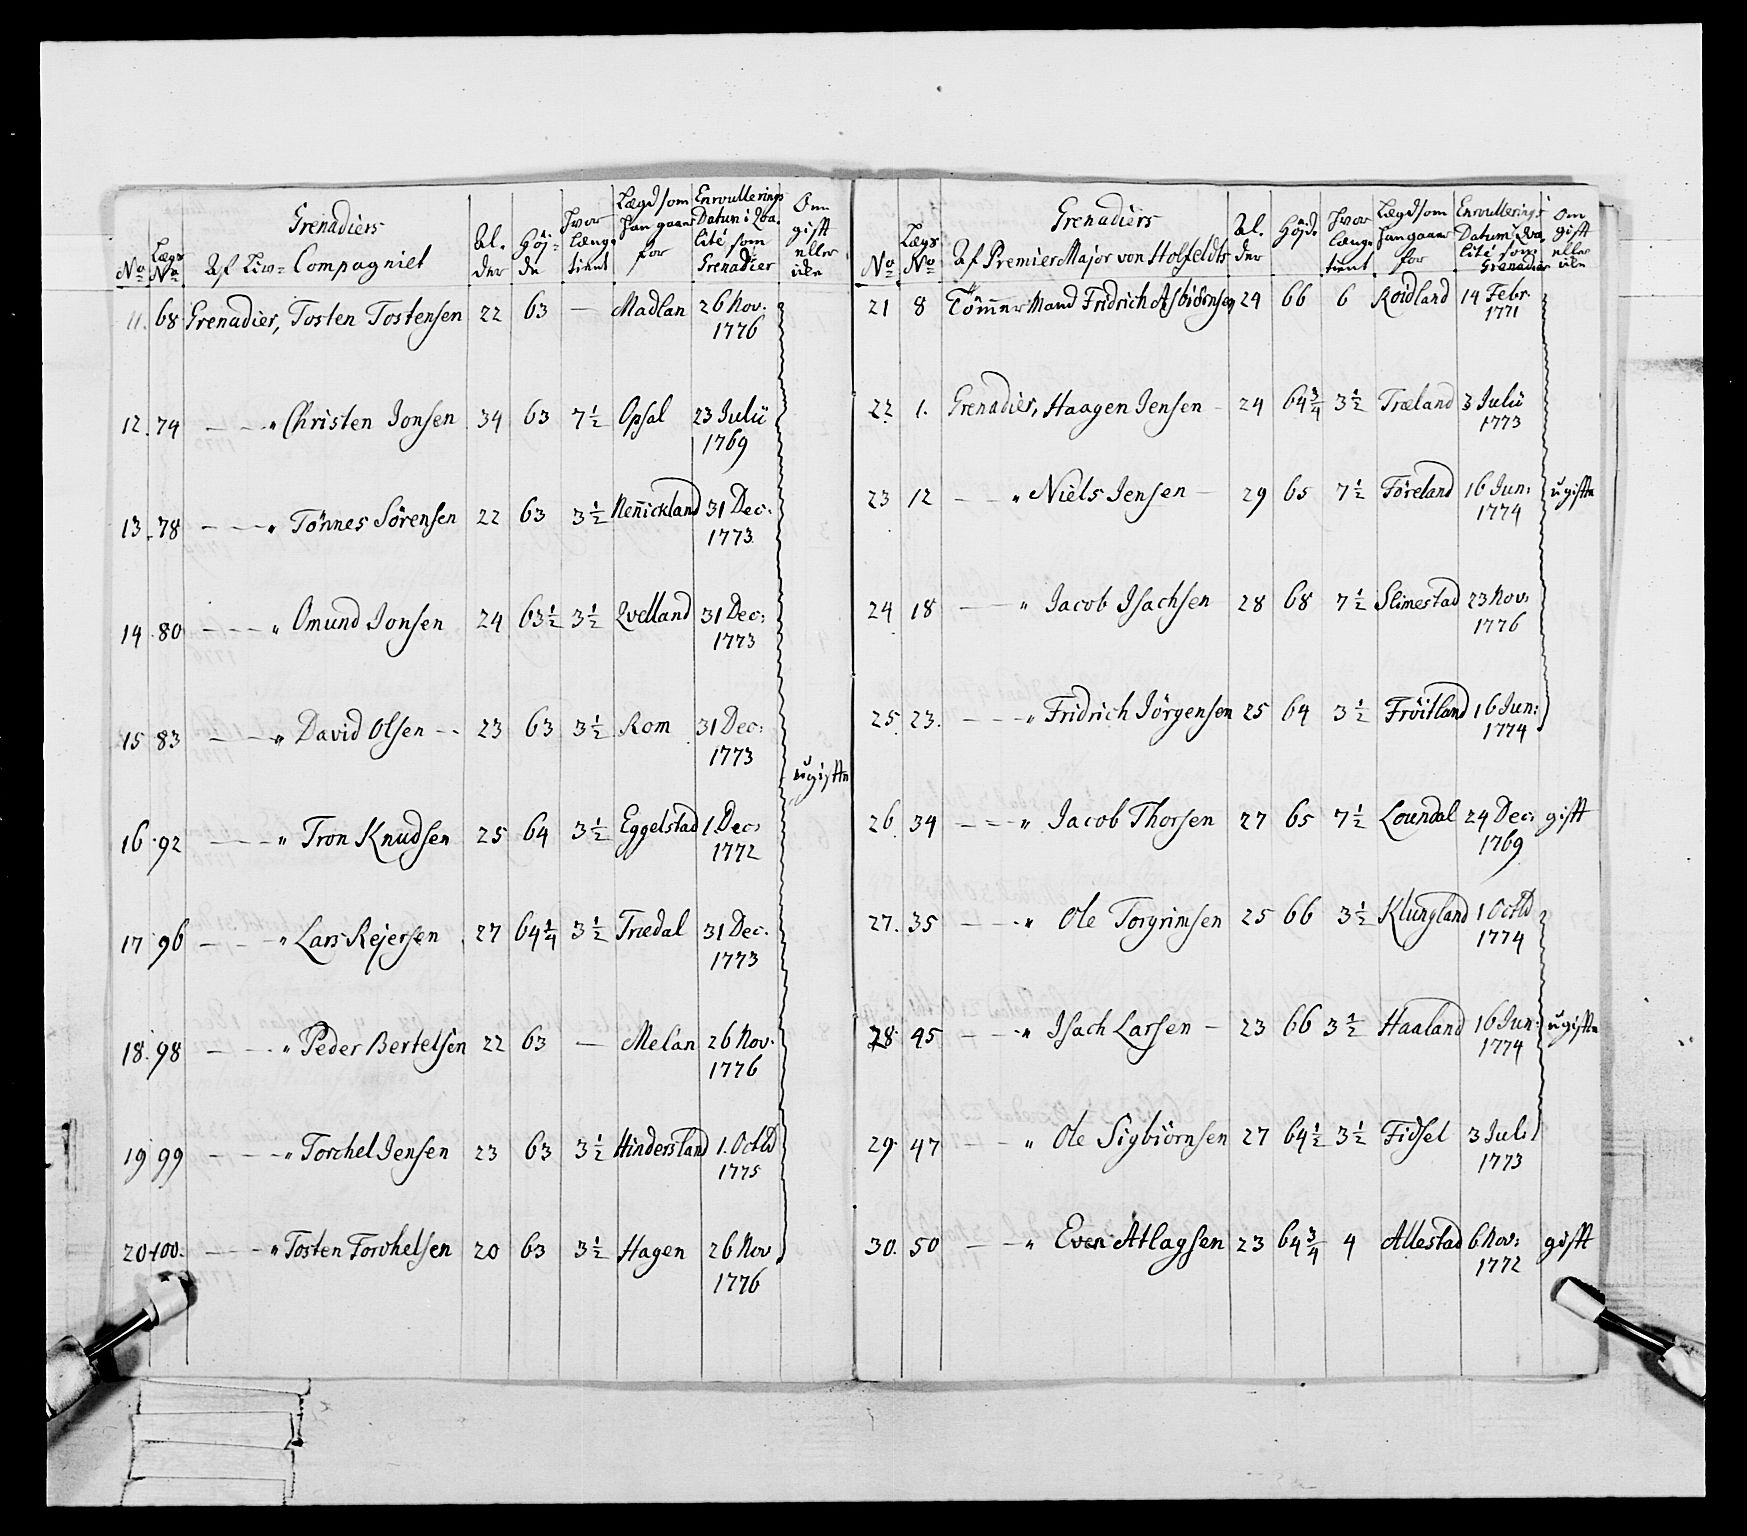 Grenadiers
Af Liv= Compagniet
No Lægs No Al. der Höj= de Hvor længe tient Lægd som han gaar for Enroullerings Datum i Qva. lité som Grenadier Om gift eller ei
11. 68 Grenadier, Tosten Tostensen 22 63 — Madlan 26 Nov:
1776
12. 74 — — " Christen Jonsen 34 63 7½ Opsal 23 Julii
1769
13. 78 — — — " Tönnes Sörensen 22 63 3½ Nen̄ickland 31 Dec.
1773
14. 80 — — — " Omund Jonsen 24 63½ 3½ Qvelland 31 Dec:
1773
15 83 — — — " David Olsen - - 23 63 3½ Rom 31 Dec:
1773
ugifte
16. 92 — — — " Tron Knudsen 25 64 3½ Eggelstad 1. Dec:
1772
17 96 — — — " Lars Rejersen 27 64¼ 3½ Trædal 31 Dec.
1773
18. 98 — — — " Peder Bertelsen 22 63 — Melan 26 Nov.
1776
19 99 — — — " Torchel Jensen 23 63 3½ Hindersland 1. Octb
1775
20 100. — — — " Tosten Torchelsen 20 63 3½ Hagen 26 Nov
1776
Grenadiers
Af Premier Major von Holfeldts
No Lægs No Al. der Höjde Hvor længe tient Lægd som han gaar for Enroullerings Datum i Qva. lité som Grenadier Om gift eller ei
21 8 Töm̄er Mand Fridrich Asbiörnsen 24 66 6 Roidland 14 Febr.
1771
22. 1. Grenadier, Haagen Jensen - 24 64¾ 3½ Træland 3 Julii
1773
23 12 — — " Niels Jensen — 29 65 7½ Föreland 16 Jun: ugifte
1774
24 18 — — " Jacob Isachsen 28 68 7½ Slimestad 23 Nov:
1776
25. 23. — — — " Fridrich Jörgensen 25 64 3½ Fröitland 16 Jun:
1774
26. 34 — — — " Jacob Thorsen 27 65 7½ Loundal 24 Dec: gift
1769
27. 35 — — — " Ole Torgrimsen 25 66 3½ Klungland 1 Octb
1774
28. 45 — — — " Isach Larsen — 23 66 3½ Haaland 16 Jun: ugifte
1774
29. 47 — — " Ole Sigbiörnsen 27 64½ 3½ Fidsel 3 Juli
1773
30. 50 — — " Even Atlagsen 23 64¾ 4 Allestad 6 Nov: gift
1772